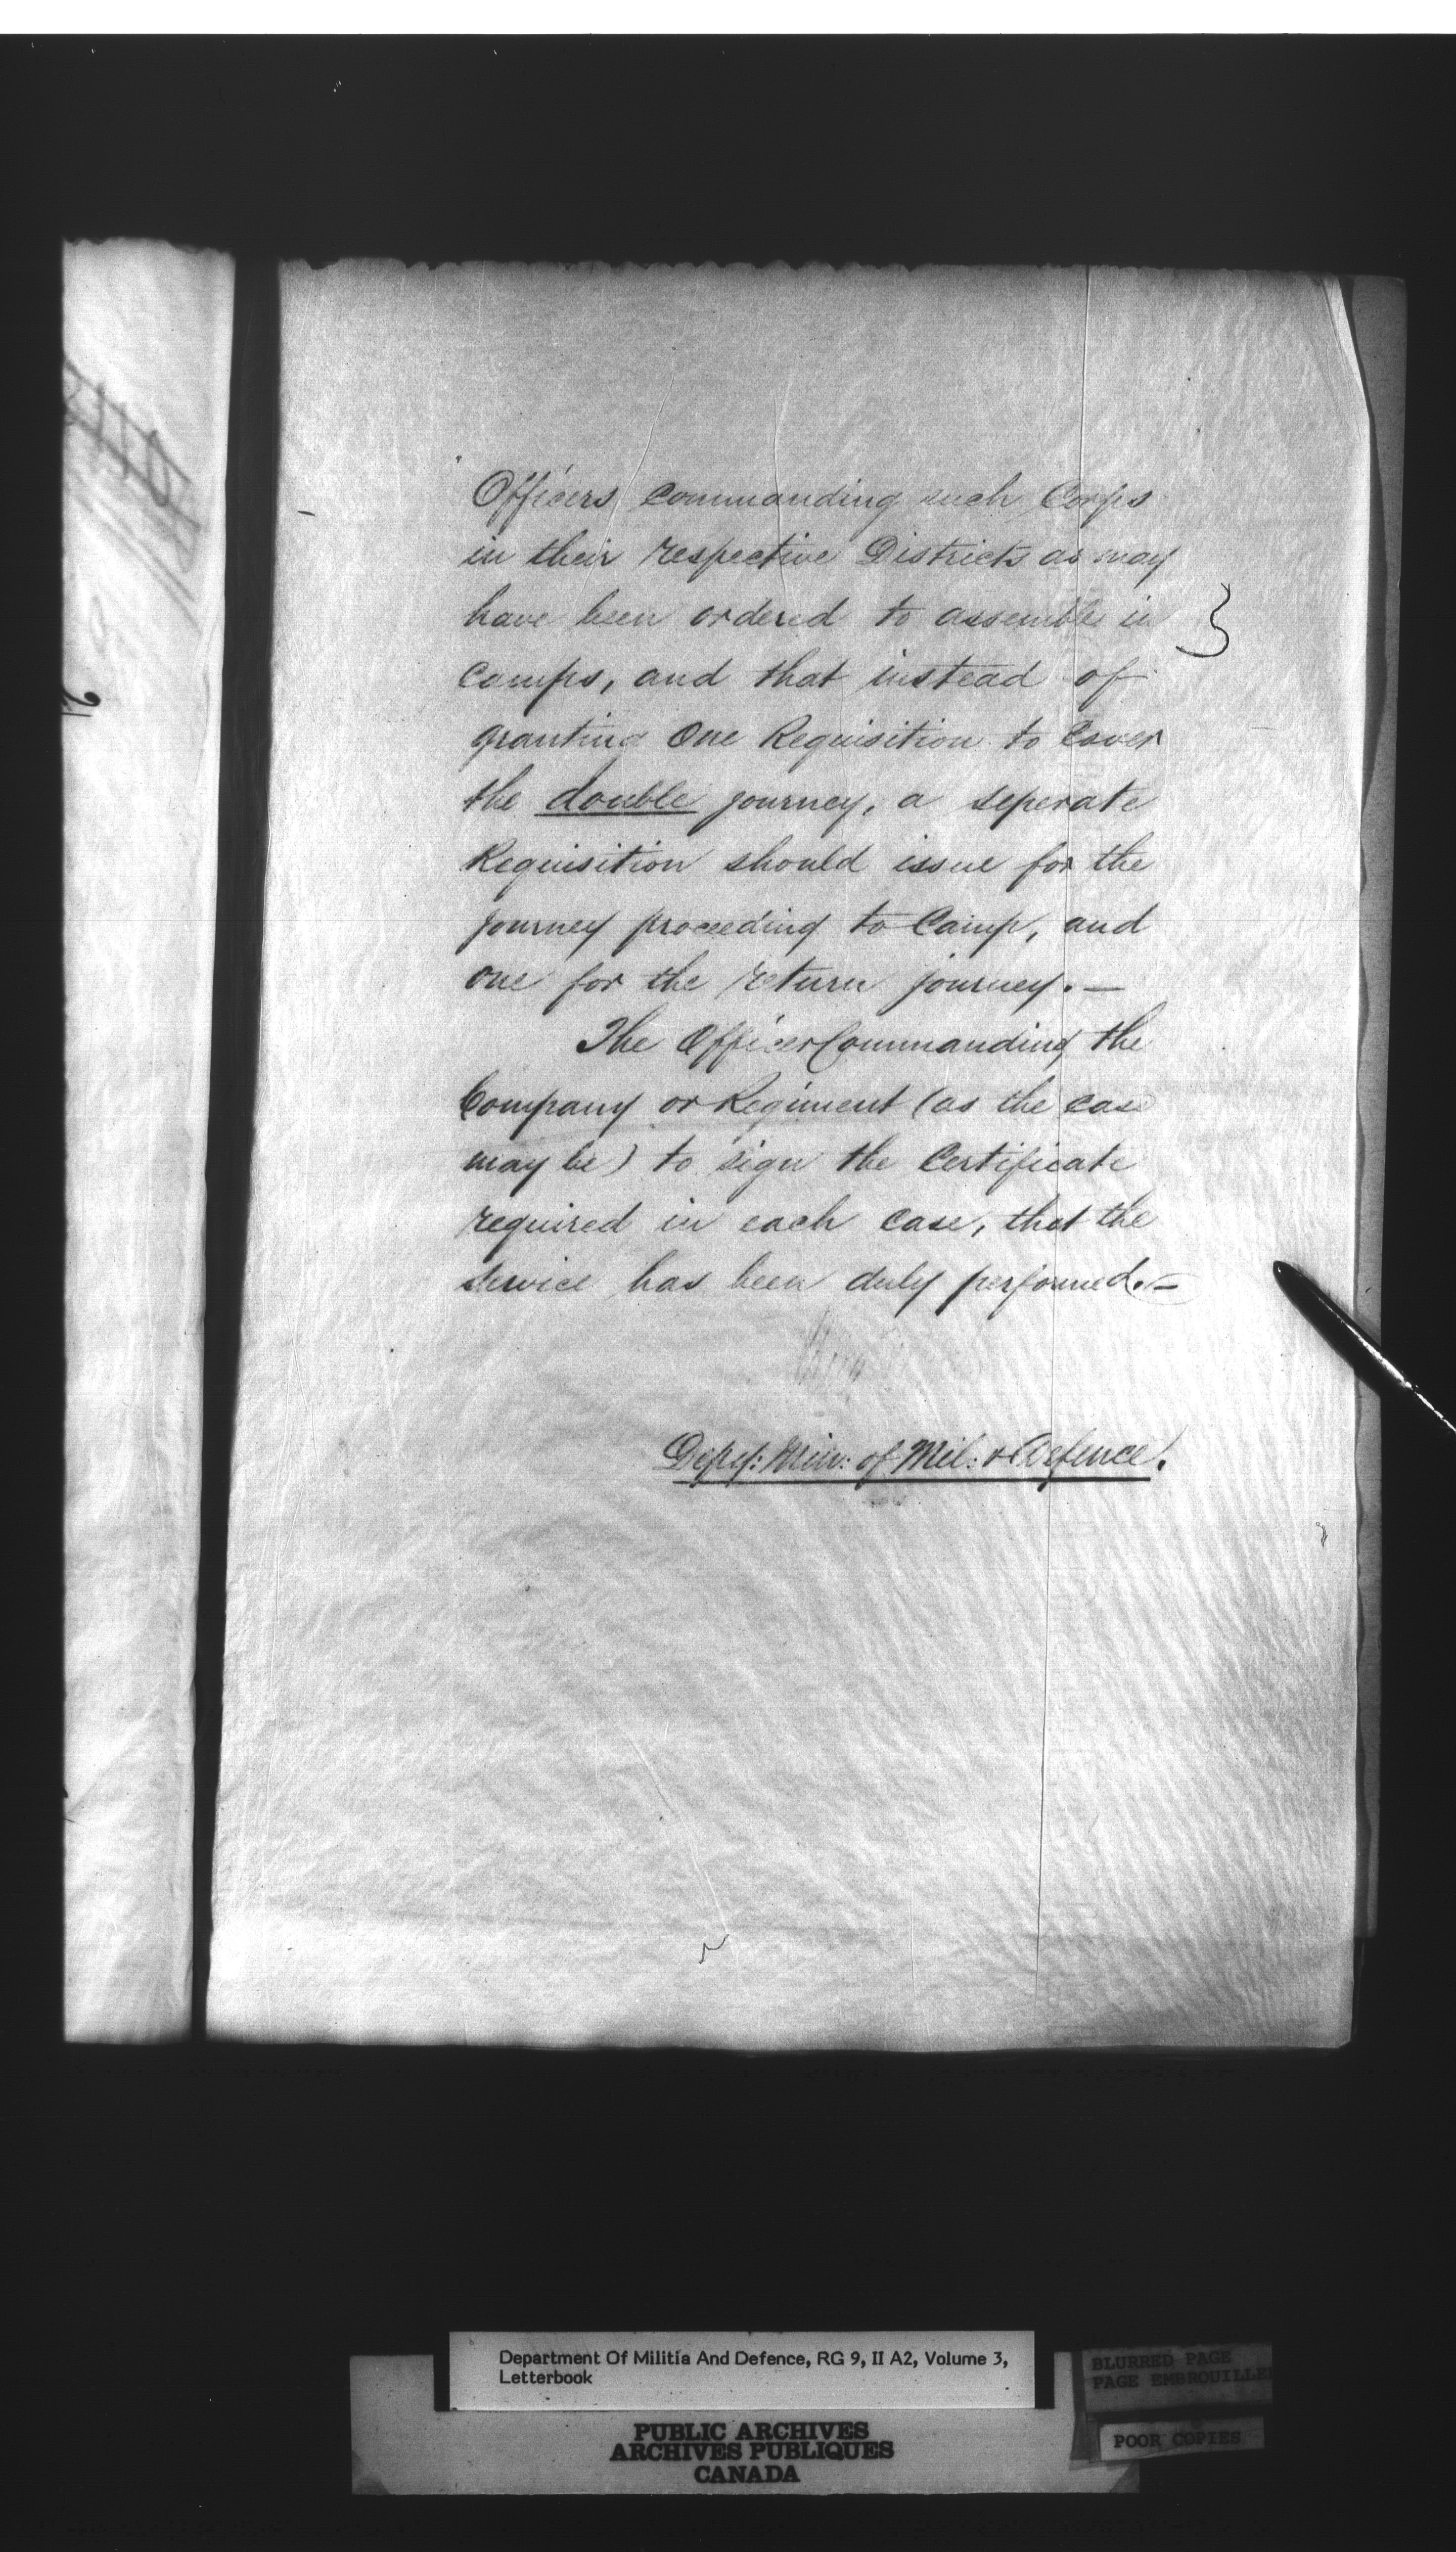 Officers commanding such Corps
in their respective Districts as may
have been ordered to assemble in
camps, and that instead of
granting One Requisition to Cover
the double journey, a seperate
Requisition should issue for the
journey proceeding to Camp, and
one for the return journey. —
The Officer Commanding the
Company or Regiment (as the case
may be) to sign the Certificate
required in each case, that the
service has been duly performed. —
Depy: Min: of Mil: & Defence.
Department Of Militia And Defence, RG 9, II A2, Volume 3,
Letterbook
BLURRED PAGE
PAGE EMBROUILLEE
POOR COPIES
PUBLIC ARCHIVES
ARCHIVES PUBLIQUES
CANADA